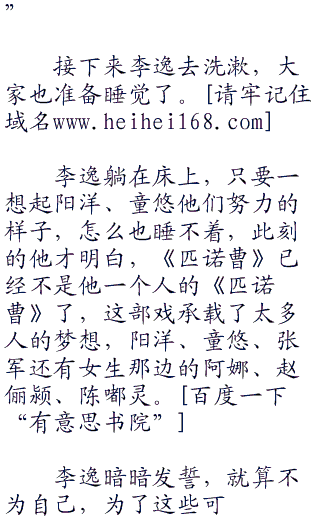 ”
接下来李逸去洗漱，大
家也准备睡觉了。[请牢记住
域名www.heihei168.com]
李逸躺在床上，只要一
想起阳洋、童悠他们努力的
样子，怎么也睡不着，此刻
的他才明白，《匹诺曹》已
经不是他一个人的《匹诺
曹》了，这部戏承载了太多
人的梦想，阳洋、童悠、张
军还有女生那边的阿娜、赵
俪颍、陈嘟灵。[百度一下
“有意思书院”]
李逸暗暗发誓，就算不
为自己，为了这些可